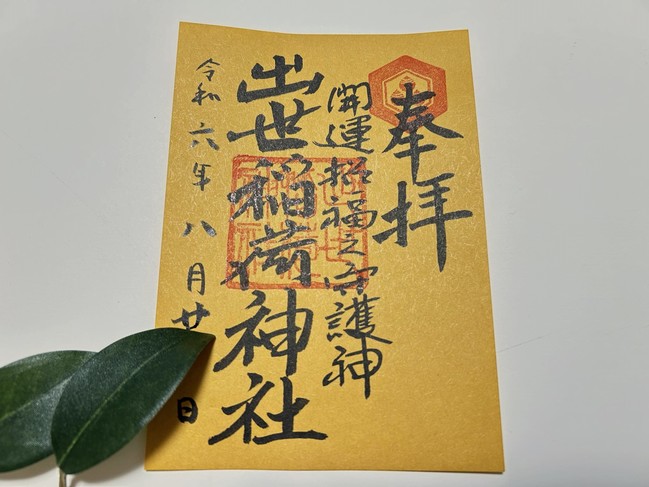 奉拝
開運招福之守護神
出世稲荷神社
令和六年八月廿
日